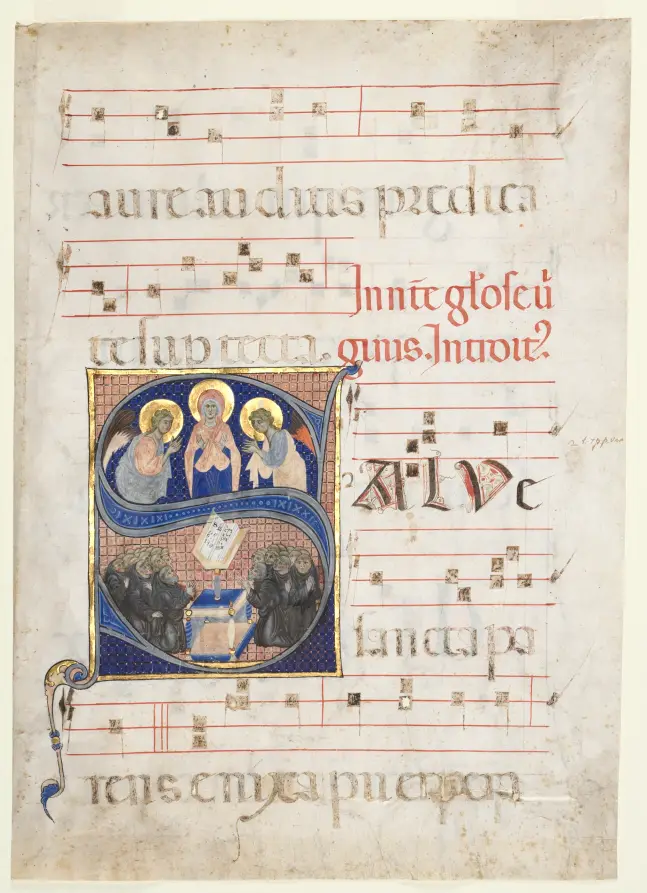 aure auditis predica
te sup tecta.
In nr̄e gl̓ose ũ
ginis. Introit᷒
SALVE
sancta pa
rens enixa puerpera